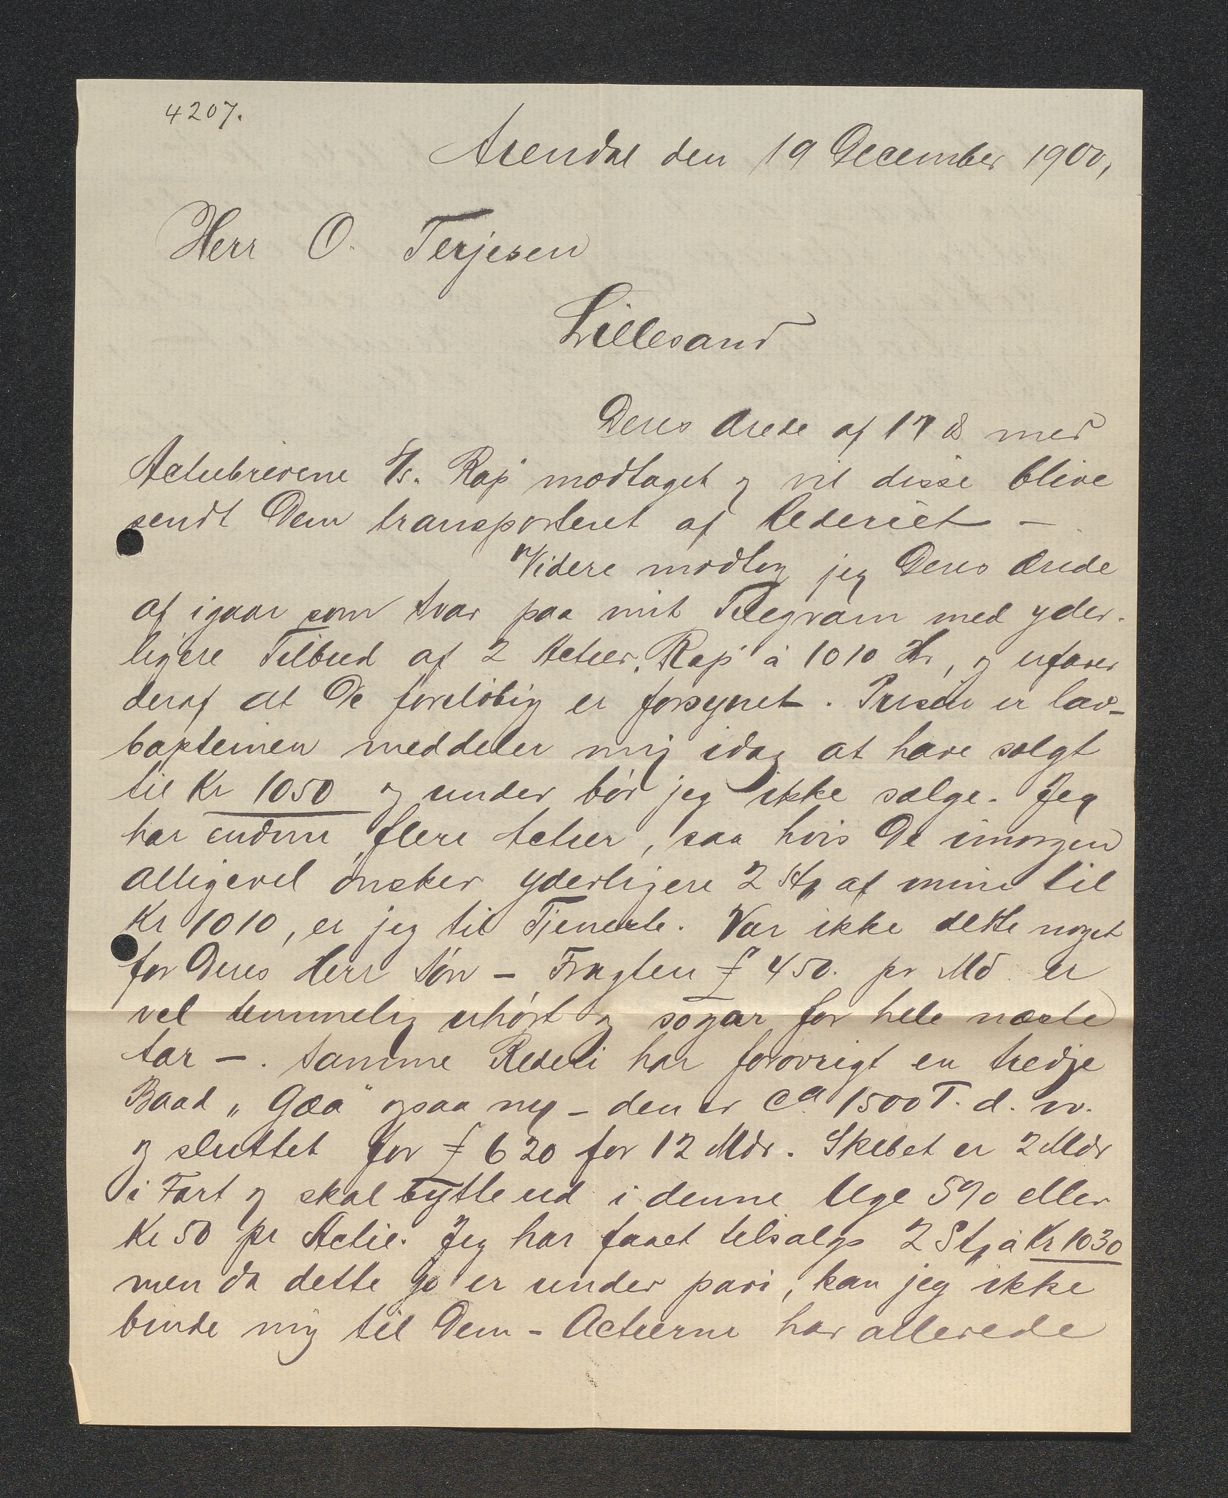 4207.
Arendal den 19 December 1900,
Herr O. Terjesen
Lillesand
Deres Ærede af 17 ds med
Actiebrevene S/s. Rap modtaget og vil disse blive
sendt Dem transporteret af Rederiet —
Videre modtog jeg Deres Ærede
af igaar som Svar paa mit Telegram med yder-
ligere Tilbud af 2 Actier "Rap" à 1010 Kr, og erfarer
deraf at De foreløbig er forsynet. Prisen er lav-
Kapteinen meddeler mig idag at have solgt
til Kr 1050 og under bør jeg ikke sælge. Jeg
har endnu flere Actier, saa hvis De imorgen
alligevel ønsker yderligere 2 Stk af mine til
Kr 1010, er jeg til Tjeneste. Var ikke dette noget
for Deres Herr Søn — Fragten £ 450. pr Md er
vel temmelig uhørt og sogar for hele næste
Aar —. Samme Rederi har forøvrigt en tredje
Baad "Gæa" ogsaa ny — den er ca 1500 T. d. w.
og sluttet for £ 620 for 12 Mdr. Skibet er 2 Mdr
i Fart og skal bytte ud i denne Uge 5% eller
Kr 50 pr Actie. Jeg har faaet tilsalgs 2 Stk à Kr 1030
men da dette jo er under pari, kan jeg ikke
binde mig til Dem — Actierne har allerede